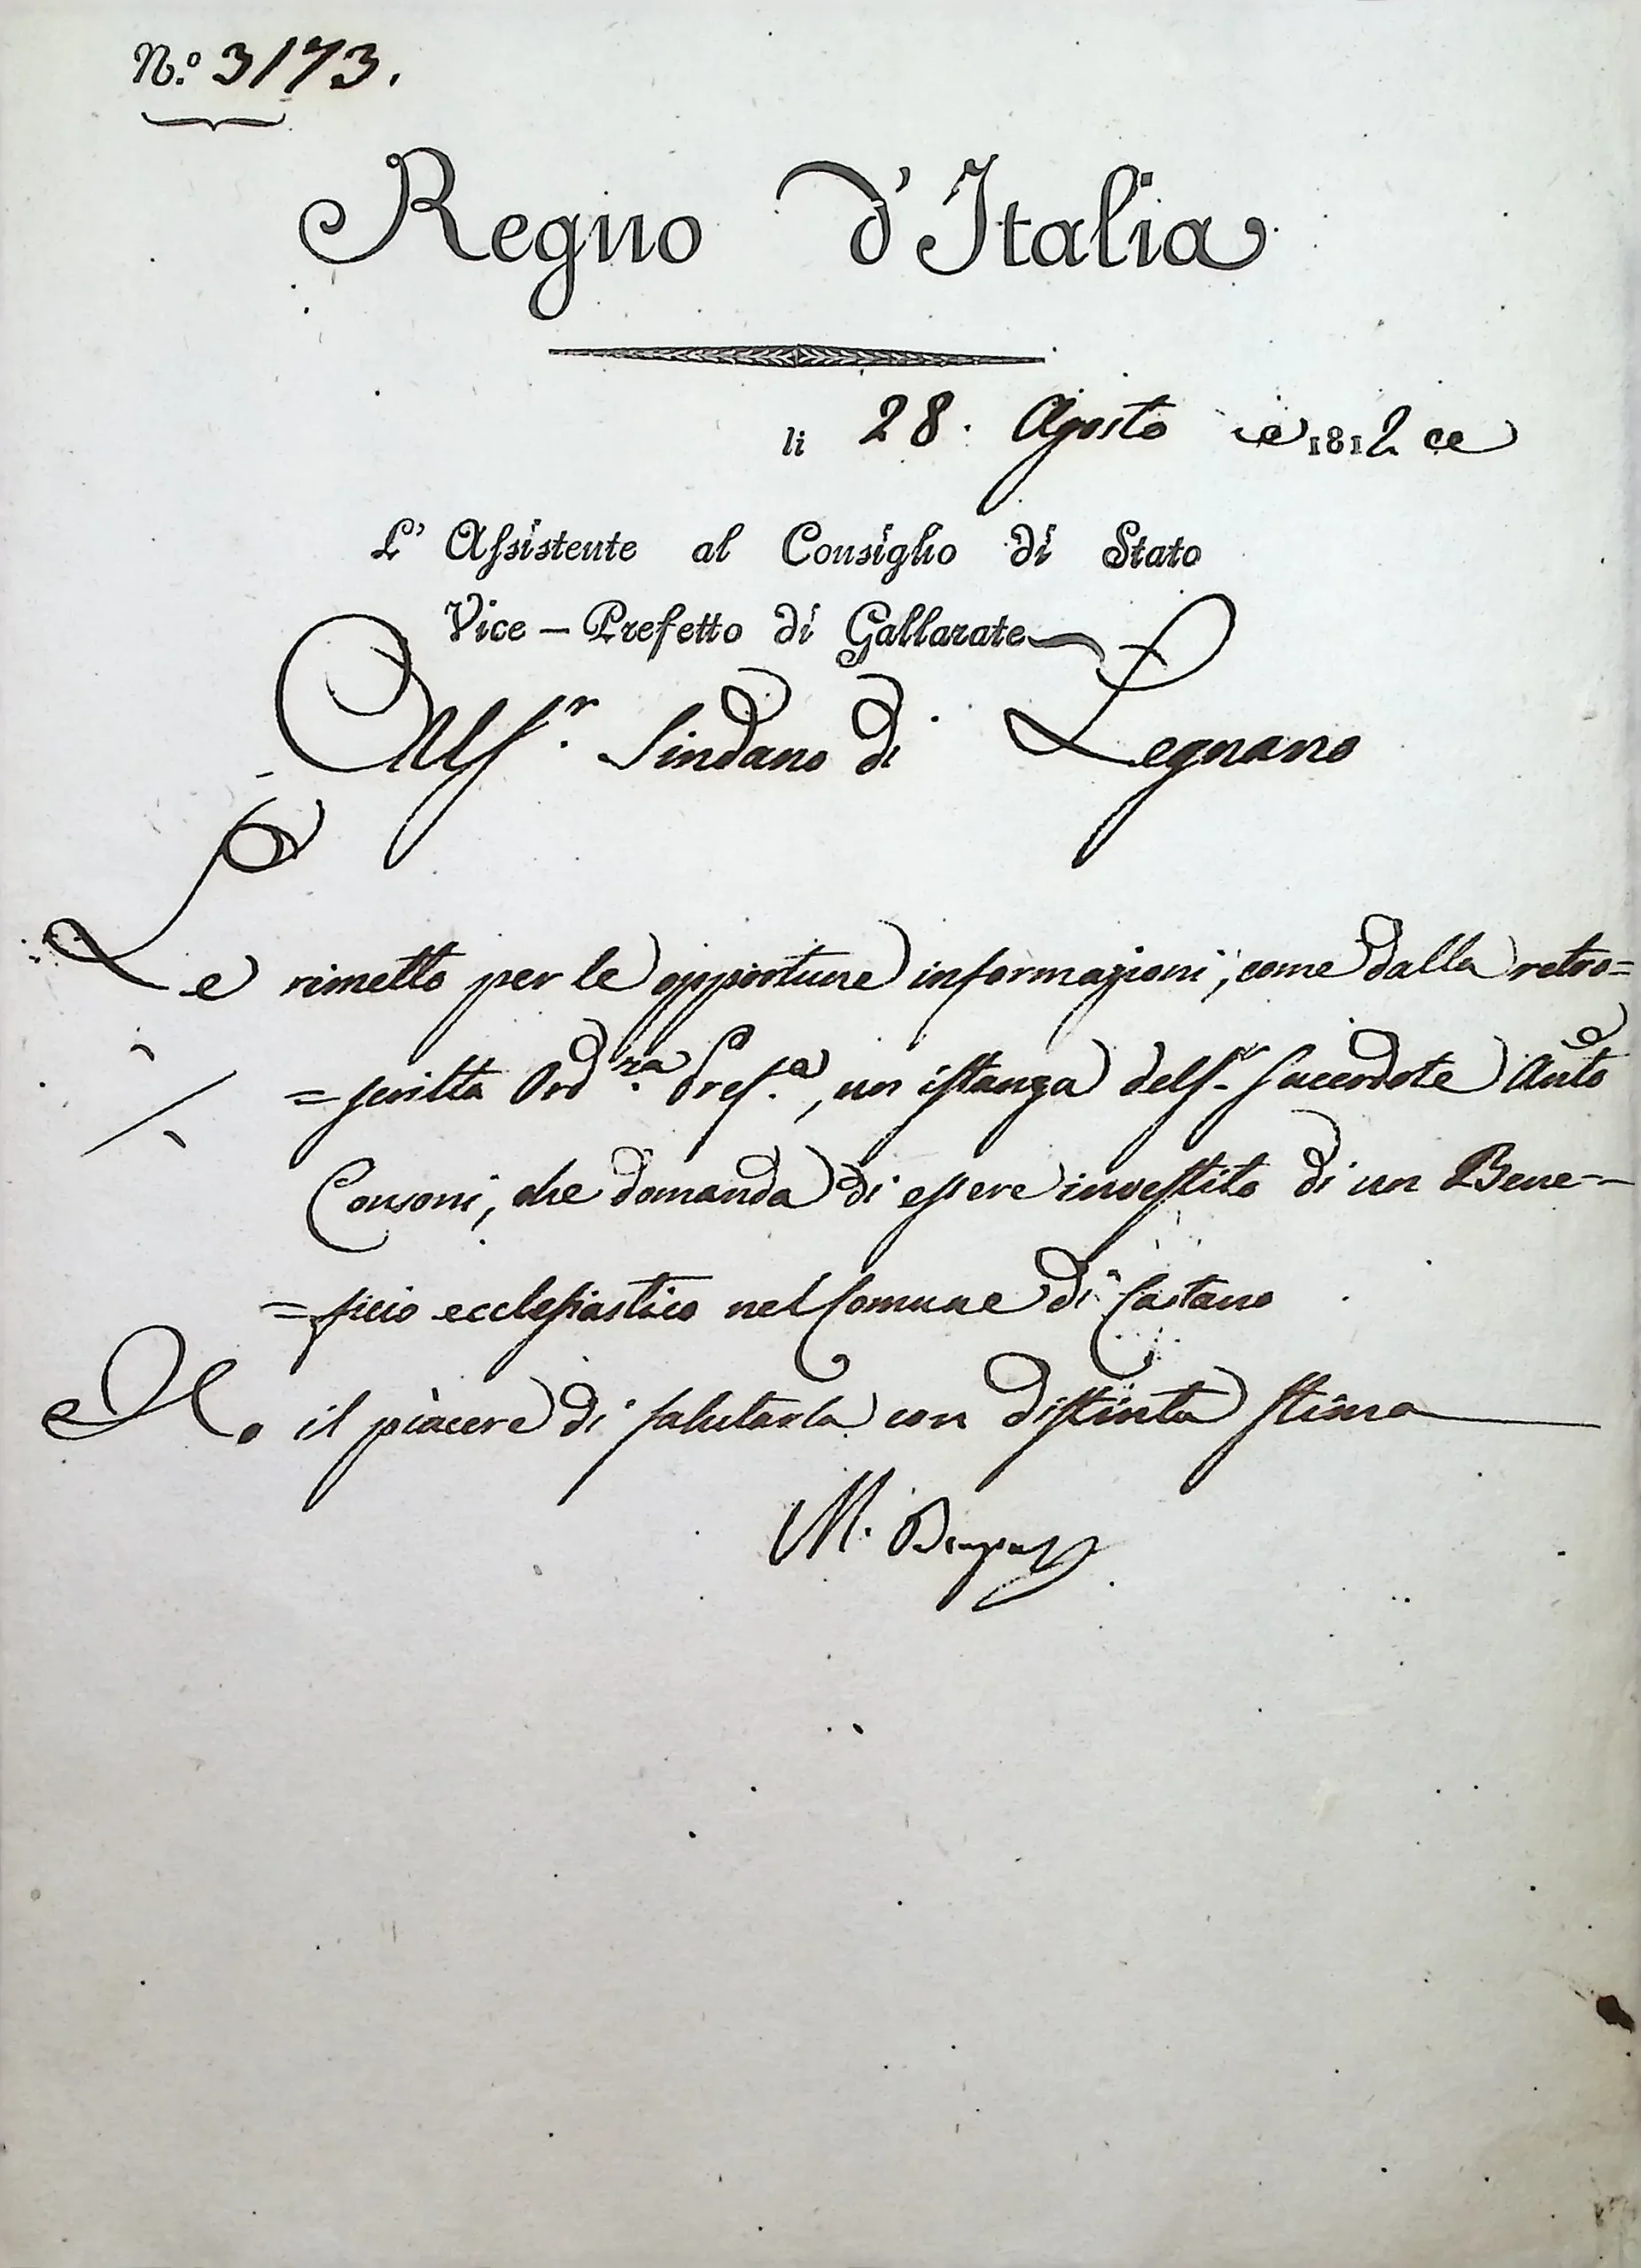 N.o 3173.
Regno d'Italia
li 28. Agosto 1812
L' Assistente al Consiglio di Stato
Vice-Prefetto di Gallarate
Al S.r Sindaco di Legnano
Le rimetto per le opportune informazioni, come dalla retro=
=scritta Ord.za Pref.a, un istanza del S.r Sacerdote Anto
Consoni, che domanda di essere investito di un Bene=
=ficio ecclesiastico nel Comune di Castano
Ho il piacere di salutarla con distinta stima
M.